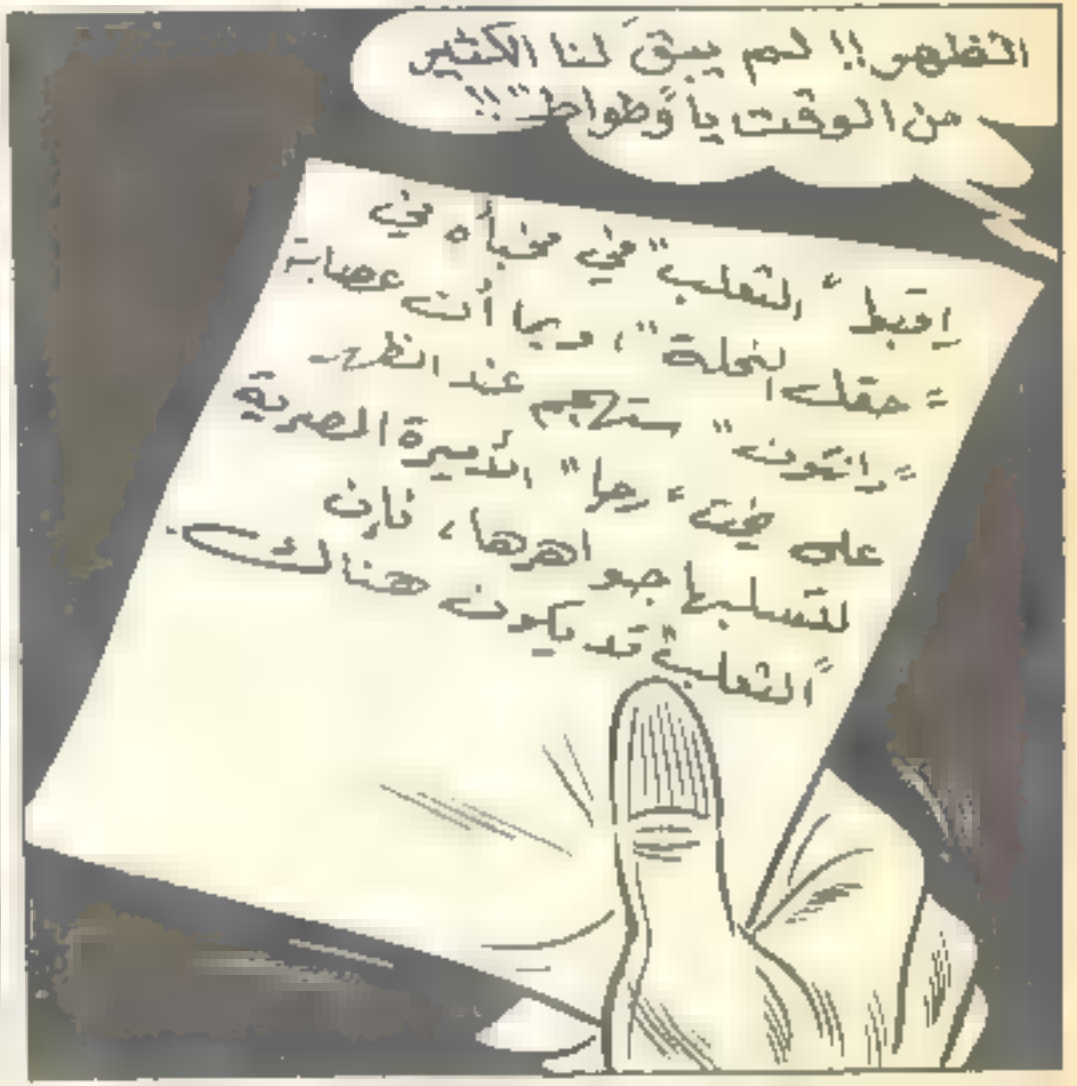 الظهر!! لم يبقَ لنا الكثير
من الوقت يا "وطواط"!!
إهبط "الثعلب" في مخبأه في
"حقل النحلة"، وبما أن عصابة
"رانتون" ستهجم عند الظهر
على يخت "رحا" الأميرة المصرية
لتسلبها جواهرها، فإن
"الثعلب" قد يكون هناك